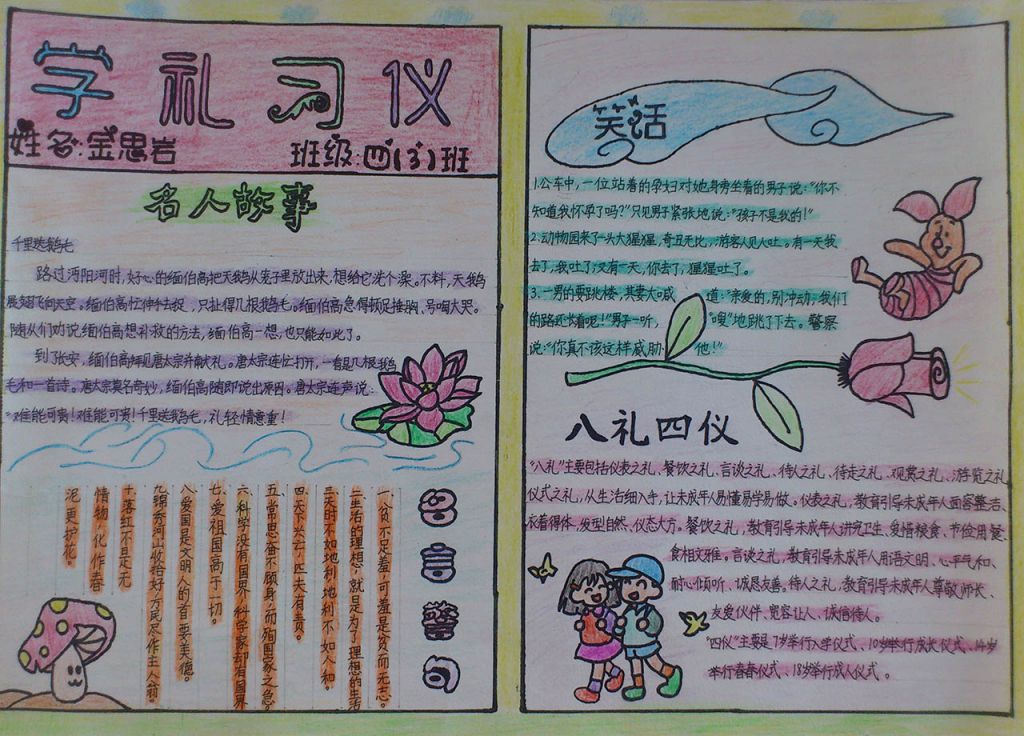 学礼习仪
姓名:金思岩 班级:四(3)班
名人故事
千里送鹅毛
路过沔阳河时,好心的缅伯高把天鹅从笼子里放出来,想给它洗个澡。不料,天鹅
展翅飞向天空。缅伯高忙伸手去捉,只扯得几根鹅毛。缅伯高急得顿足捶胸,号啕大哭。
随从们劝说缅伯高想补救的方法,缅伯高一想,也只能如此了。
到了长安,缅伯高拜见唐太宗并献礼。唐太宗连忙打开,一看是几根鹅
毛和一首诗。唐太宗莫名奇妙,缅伯高随即说出原因。唐太宗连声说:
“难能可贵!难能可贵!千里送鹅毛,礼轻情意重!
名言警句
一、贫不足羞,可羞是贫而无志。
二、生活的理想,就是为了理想的生活
三、天时不如地利,地利不如人和。
四、天下兴亡,匹夫有责。
五、常思奋不顾身,而殉国家之急。
六、科学没有国界,科学家却有国界
七、爱祖国高于一切。
八、爱国是文明人的首要美德。
九、锦绣河山收拾好,万民尽作主人翁。
十、落红不是无
情物,化作春
泥更护花。
笑话
1.公车中,一位站着的孕妇对她身旁坐着的男子说:“你不
知道我怀孕了吗?”只见男子紧张地说:“孩子不是我的!”
2.动物园来了一头大猩猩,奇丑无比,游客人见人吐。有一天我
去了,我吐了;又有一天,你去了,猩猩吐了。
3.一男的要跳楼,其妻大喊道:“亲爱的,别冲动,我们
的路还长着呢!”男子一听,“嗖”地跳了下去。警察
说:“你真不该这样威胁他!”
八礼四仪
“八礼”主要包括仪表之礼、餐饮之礼、言谈之礼、待人之礼、行走之礼、观赏之礼、游览之礼
仪式之礼,从生活细入手,让未成年人易懂易学易做。仪表之礼,教育引导未成年人面容整洁、
衣着得体,发型自然、仪态大方。餐饮之礼,教育引导未成年人讲究卫生、爱惜粮食、节俭用餐、
食相文雅。言谈之礼,教育引导未成年人用语文明、心平气和、
耐心倾听、诚恳友善。待人之礼,教育引导未成年人尊敬师长、
友爱伙伴、宽容让人、诚信待人。
“四仪”主要是7岁举行入学仪式、10岁举行成长仪式、14岁
举行青春仪式、18岁举行成人仪式。